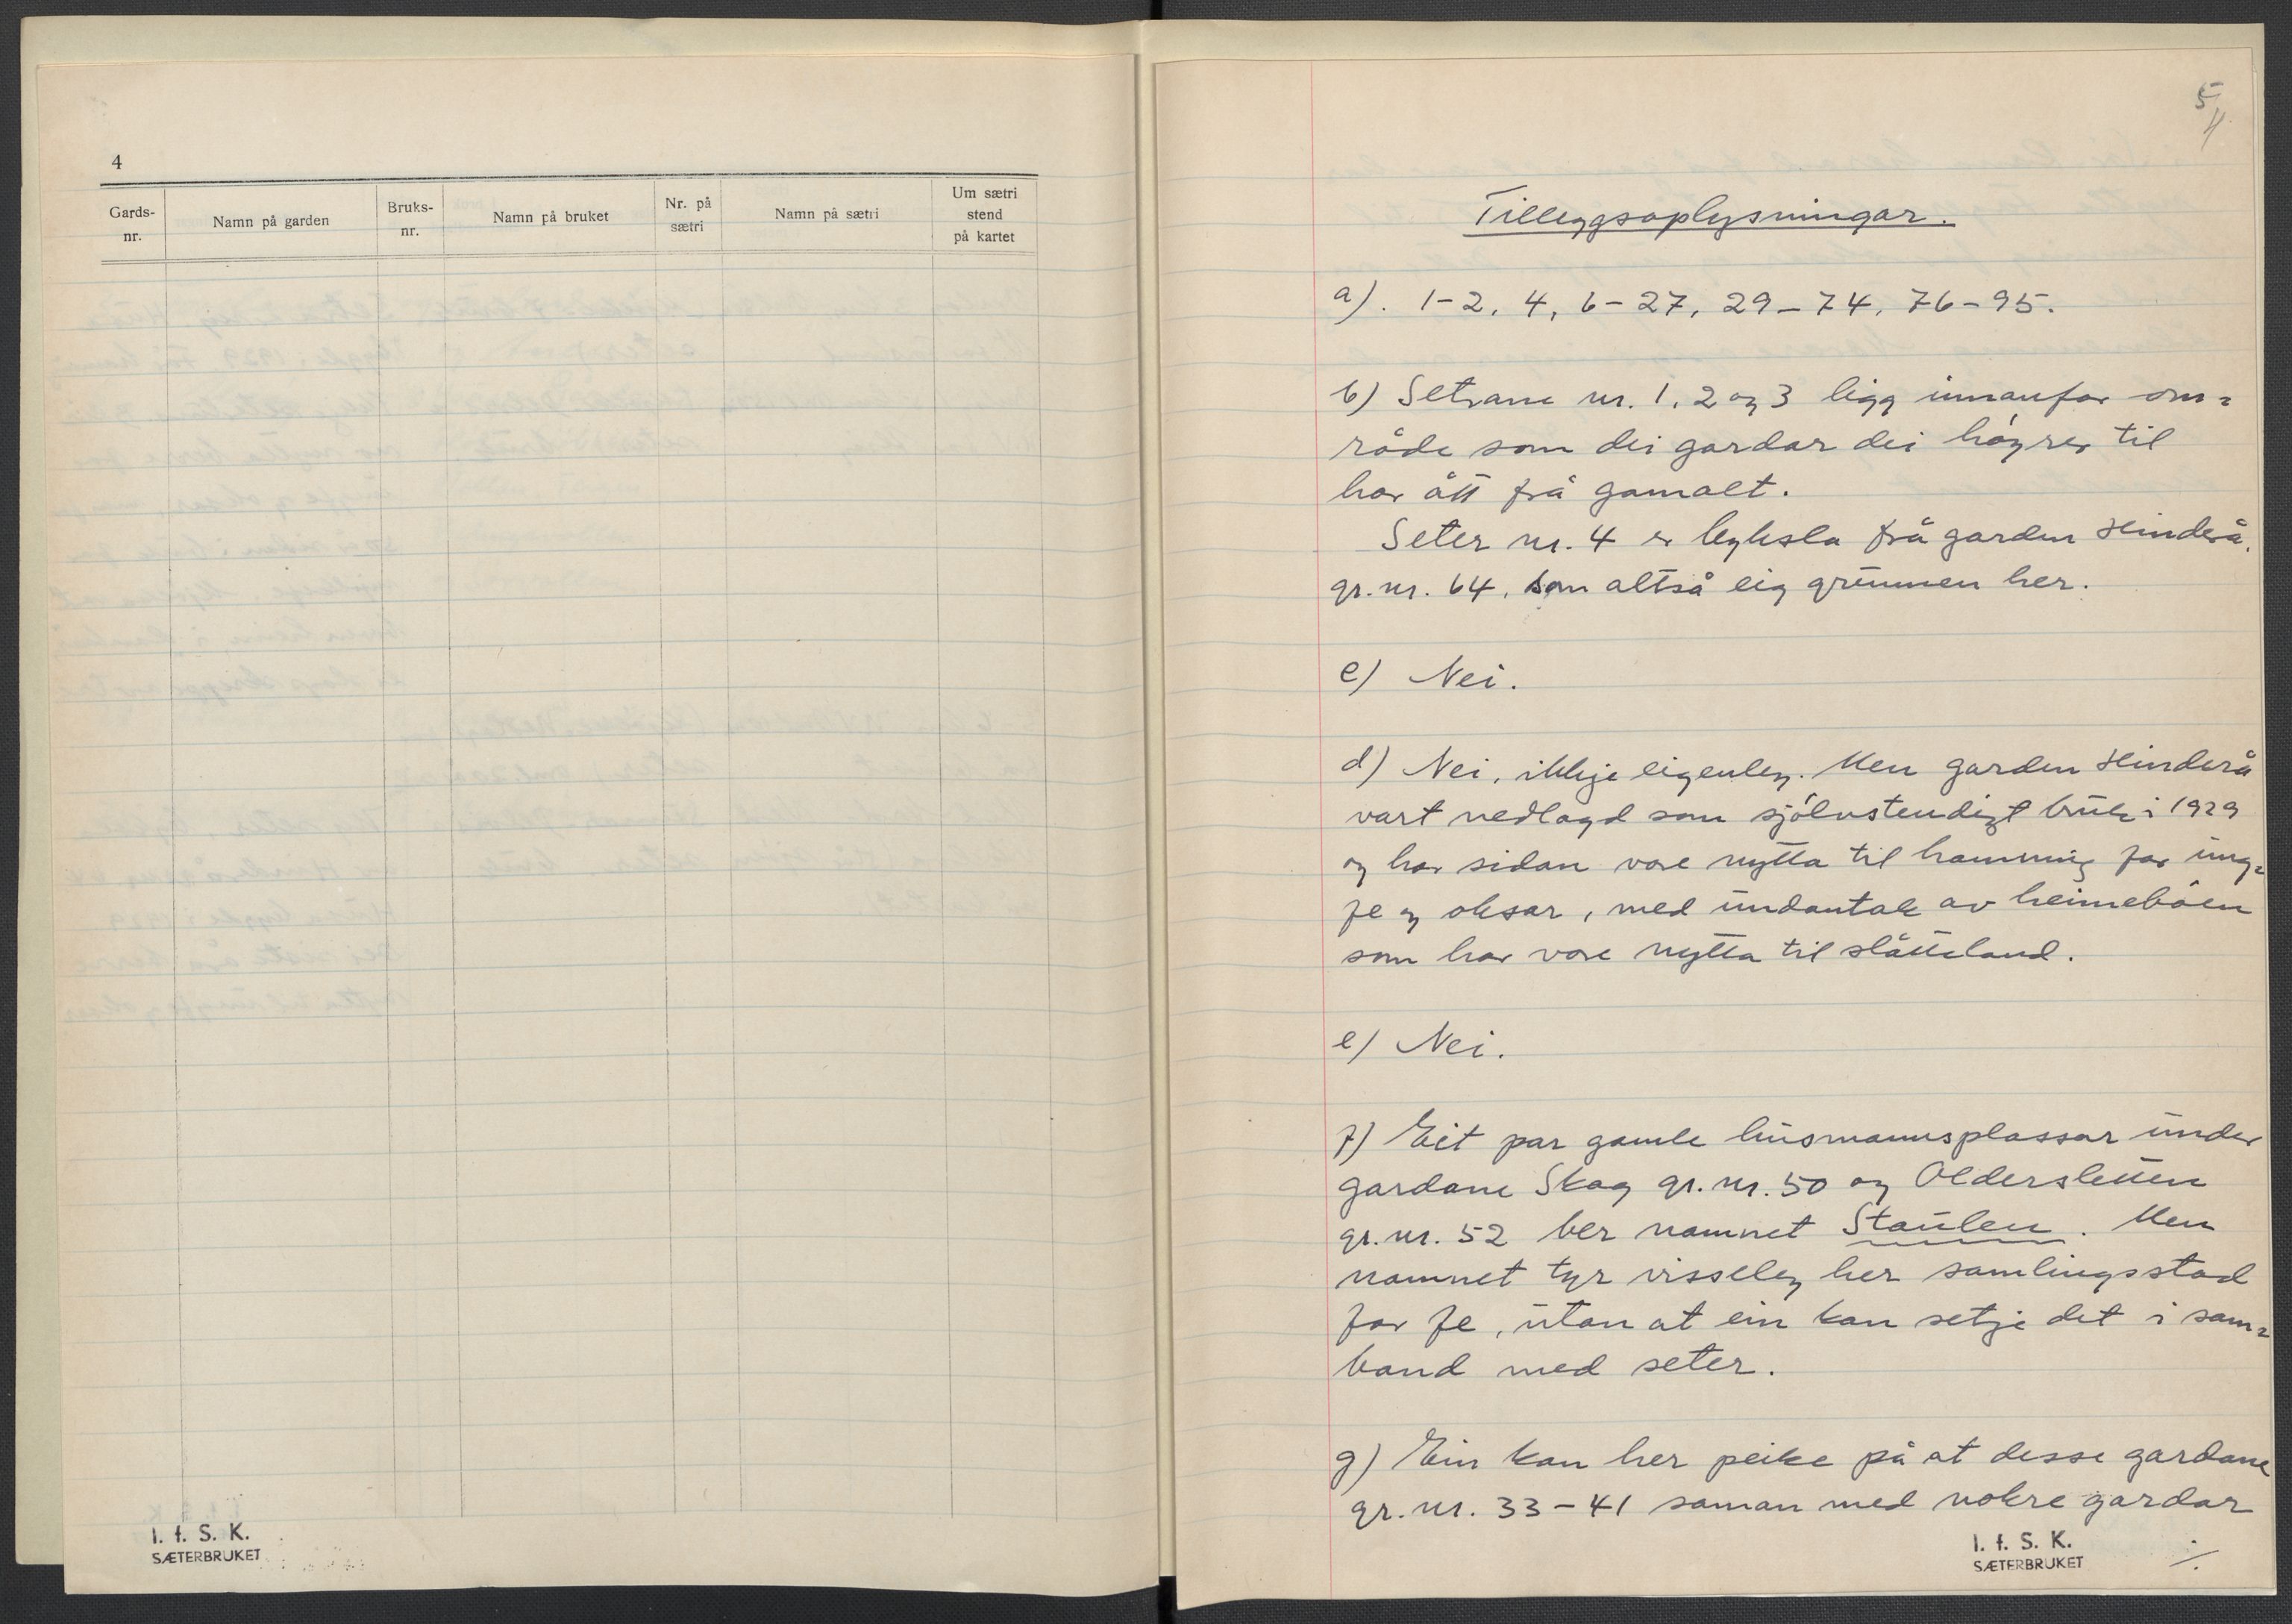 4
Gards-
nr.
Namn på garden
Bruks-
nr.
Namn på bruket
Nr. på
sætri
Namn på sætri
Um sætri
stend
på kartet
I. f. S. K.
SÆTERBRUKET
5/4
Tilleggsoplysningar.
a). 1-2, 4, 6-27, 29-74, 76-95.
b) Setrane nr. 1, 2 og 3 ligg innanfor om=
råde som dei gardar dei höyrer til
har ått frå gamalt.
Seter nr. 4 er bygsla frå garden Hinderå,
gr.nr. 64, som altså eig grunnen her.
c) Nei.
d) Nei, ikkje eigenleg. Men garden Hinderå
vart nedlagd som sjölvstendigt bruk i 1929
og har sidan vore nytta til hamning for ung=
fe og oksar, med undantak av heimebøen
som har vore nytta til slåtteland.
e) Nei.
f) Eit par gamle husmannsplassar under
gardane Skog gr.nr. 50 og Oldersletten
gr.nr. 52 ber namnet Staulen. Men
namnet tyr visseleg her samlingsstad
for fe, utan at ein kan setje det i sam=
band med seter.
g) Ein kan her peike på at desse gardane
gr.nr. 33-41 saman med nokre gardar
I. f. S. K.
SÆTERBRUKET
./.